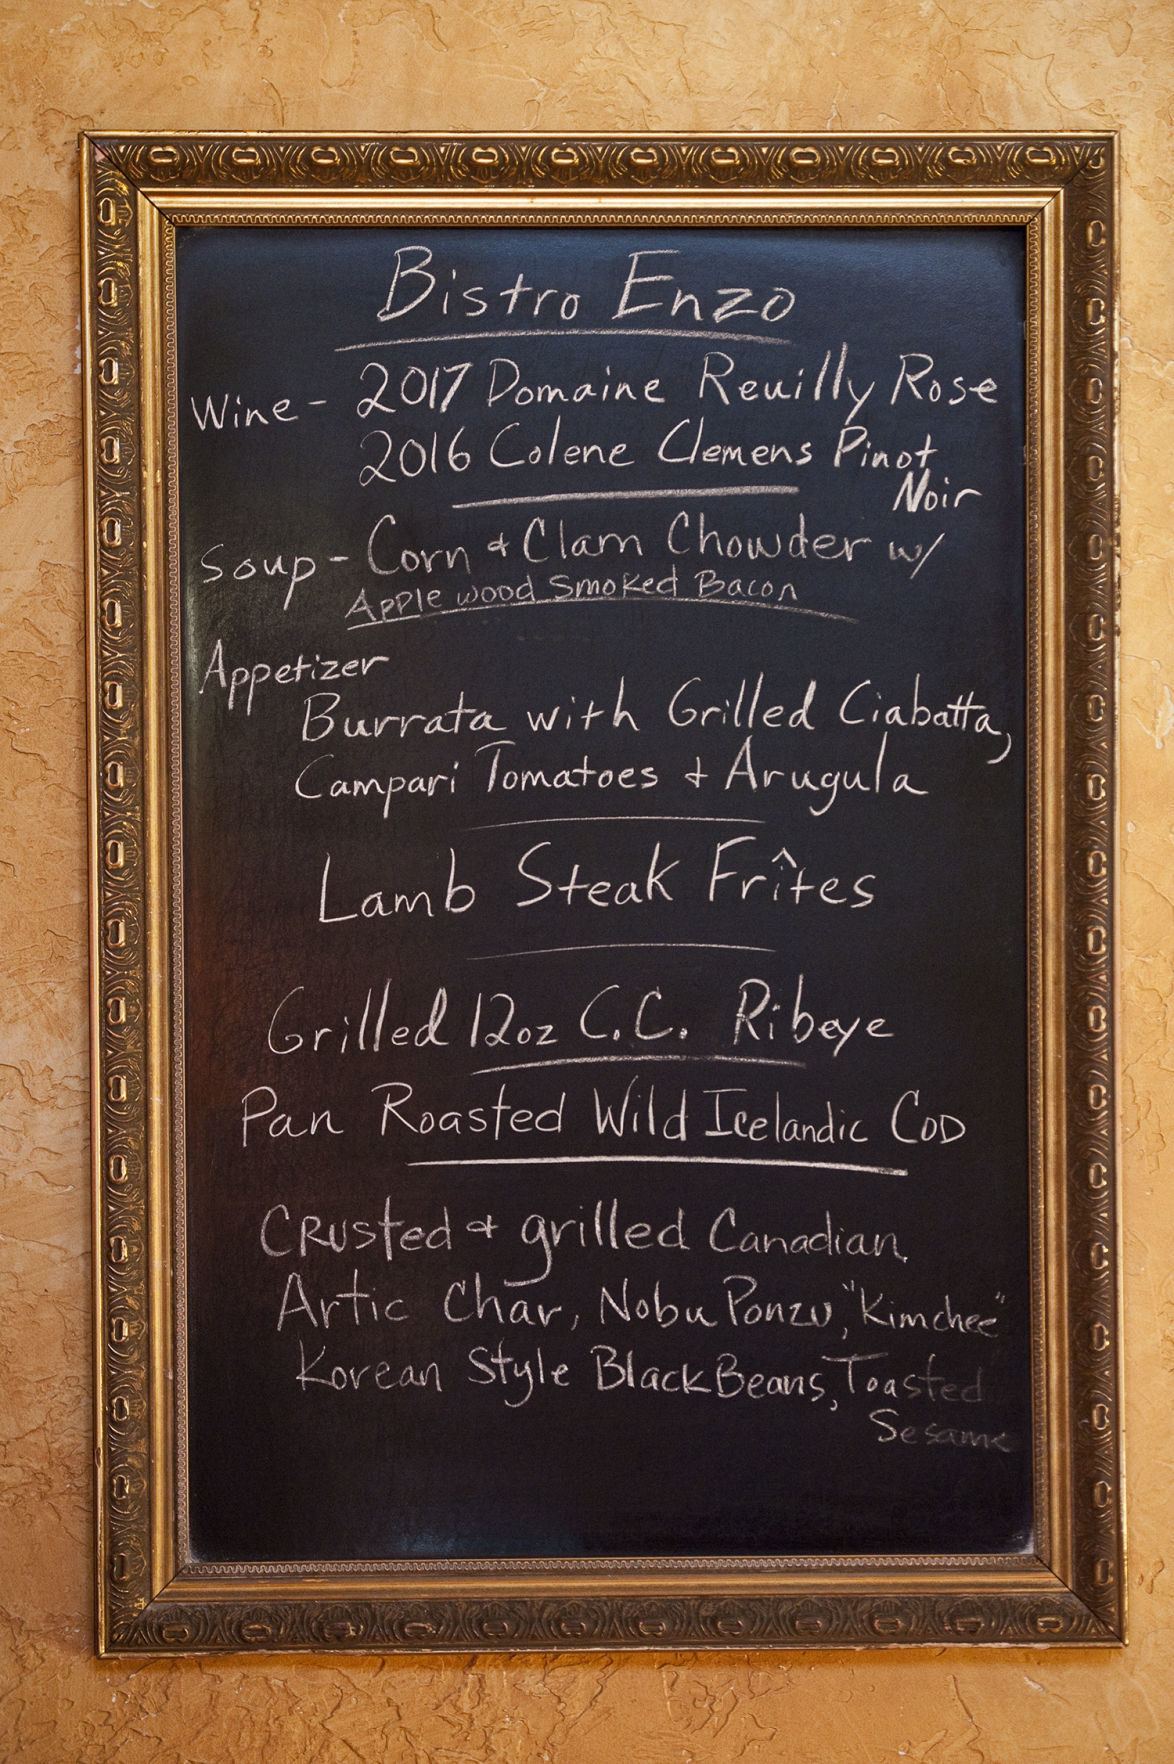 Bistro Enzo
Wine - 2017 Domaine Reuilly Rose
2016 Colene Clemens Pinot
Noir
Soup - Corn & Clam Chowder w/
Apple wood Smoked Bacon
Appetizer
Burrata with Grilled Ciabatta,
Campari Tomatoes & Arugula
Lamb Steak Frîtes
Grilled 12oz C.C. Ribeye
Pan Roasted Wild Icelandic Cod
Crusted & grilled Canadian
Artic Char, Nobu Ponzu, "Kimchee"
Korean Style Black Beans, Toasted
Sesame